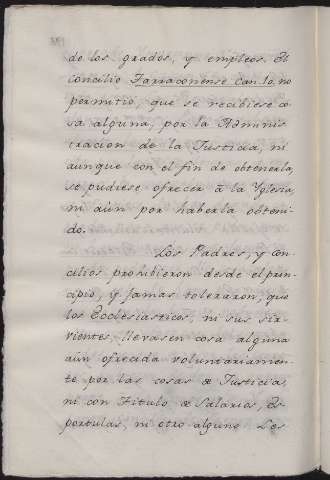 de los grados, y empleos. El
Concilio Tarraconense can. 10. no
permitió, que se recibiese co
sa alguna, por la Adminis
tracion de la Justicia, ni
aunque con el fin de obtenerla,
se pudiese ofrecer â la Yglesia,
ni aùn por haberla obteni-
do.
Los Padres, y con
cilios prohibieron desde el prin
cipio, y jamas toleraron, que
los Ecclesiasticos, ni sus sir-
vientes, llevasen cosa alguna
aùn ofrecida voluntariamen-
te por las cosas de Justicia,
ni con Titulo de Salarios, es
portulas, ni otro alguno. Les